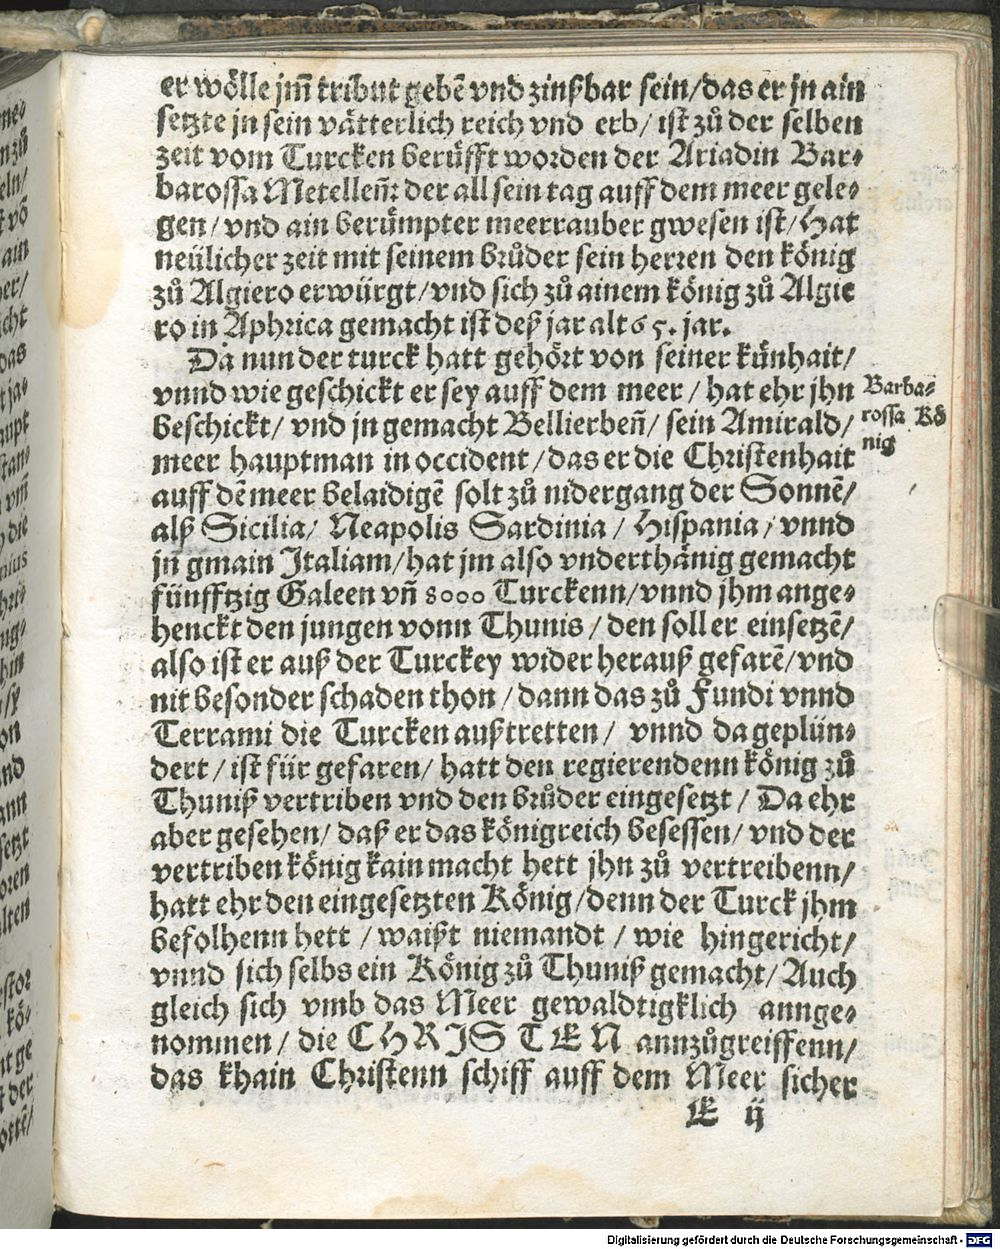 er wölle jm̃ tribut gebẽ vnd zinßbar sein/das er jn ain
setzte jn sein vätterlich reich vnd erb/ ist zů der selben
zeit vom Turcken berüfft worden der Ariadin Bar⸗
barossa Metelleñ: der all sein tag auff dem meer gele⸗
gen/vnd ain berümpter meerrauber gwesen ist/Hat
neülicher zeit mit seinem brůder sein herren den könig
zů Algiero erwürgt/vnd sich zů ainem könig zů Algie
ro in Aphrica gemacht ist deß jar alt 65. jar.
Da nun der turck hatt gehört von seiner künhait/
vnnd wie geschickt er sey auff dem meer/hat ehr jhn
beschickt/ vnd jn gemacht Bellierbeñ/ sein Amirald/
meer hauptman in occident/das er die Christenhait
auff dẽ meer belaidigẽ solt zů nidergang der Sonnẽ/
alß Sicilia/ Neapolis Sardinia / Hispania/ vnnd
jn gmain Italiam/hat jm also vnderthänig gemacht
fünfftzig Galeen vñ 8000 Turckenn/vnnd jhm ange⸗
henckt den jungen vonn Thunis / den soll er einsetzẽ/
also ist er auß der Turckey wider herauß gefarẽ/vnd
nit besonder schaden thon / dann das zů Fundi vnnd
Terrami die Turcken außtretten/ vnnd da geplün⸗
dert / ist für gefaren/ hatt den regierendenn könig zů
Thuniß vertriben vnd den brůder eingesetzt / Da ehr
aber gesehen/ daß er das königreich besessen/ vnd der
vertriben könig kain macht hett jhn zů vertreibenn/
hatt ehr den eingesetzten König/denn der Turck jhm
befolhenn hett / waißt niemandt / wie hingericht/
vnnd sich selbs ein König zů Thuniß gemacht/ Auch
gleich sich vmb das Meer gewaldtigklich annge⸗
nommen/ die CHRISTEN annzůgreiffenn/
das khain Christenn schiff auff dem Meer sicher
E ij
Barba⸗
rossa Kö
nig
Digitalisierung gefördert durch die Deutsche Forschungsgemeinschaft - DFG